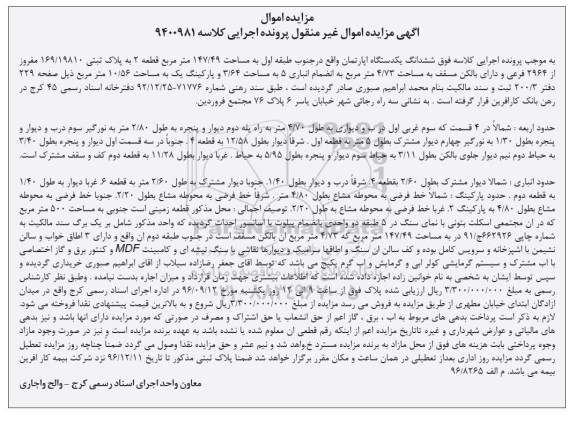 مزایده اموال
آگهی مزایده اموال غیر منقول پرونده اجرایی کلاسه ۹۴۰۰۹۸۱
به موجب پرونده اجرایی کلاسه فوق ششدانگ یکدستگاه اپارتمان واقع درجنوب طبقه اول به مساحت ۱۴۷/۴۹ متر مربع قطعه ۲ به پلاک ثبتی ۱۶۹/۱۹۸۱۰ مفروز
از ۲۹۶۴ فرعی و دارای بالکن مسقف به مساحت ۴/۷۳ متر مربع به انضمام انباری ۵ به مساحت ۳/۶۴ و پارکینگ یک به مساحت ۱۰/۵۶ متر مربع ذیل صفحه ۲۲۹
دفتر ۲۰۰/۳ ثبت و سند مالکیت بنام محمد ابراهیم صبوری صادر گردیده است ، طبق سند رهنی شماره ۷۱۷۷۶-۹۲/۱۲/۲۵ دفترخانه اسناد رسمی ۴۵ کرج در
رهن بانک کارآفرین قرار گرفته است . به نشانی سه راه رجائی شهر خیابان یاسر ۶ پلاک ۷۶ مجتمع فروردین.
حدود اربعه : شمالاً در ۴ قسمت که سوم غربی اول در ب و دیواری به طول ۴/۷۰ متر به راه پله دوم دیوار و پنجره به طول ۲/۸۰ متر به نورگیر سوم درب و دیوار و
پنجره بطول ۱/۳۰ به نورگیر چهارم دیوار مشترک بطول ۵ متر به قطعه اول . شرقاً دیوار بطول ۱۲/۵۸ به قطعه ۴ . جنوباً در سه قسمت اول دیوار و پنجره بطول ۳/۴۰
به حیاط دوم نیم دیوار جلوی بالکن بطول ۳/۱۱ به حیاط سوم دیوار و پنجره بطول ۵/۹۵ به حیاط . غربا دیوار بطول ۱۱/۲۸ به قطعه دوم کف و سقف مشترک است.
حدود انباری : شمالا دیوار مشترک بطول ۲/۶۰ بقطعه ۴. شرقاً درب و دیوار بطول ۱/۴۰. جنوبا دیوار مشترک به طول ۲/۶۰ متر به قطعه ۶. غربا دیوار به طول ۱/۴۰
به قطعه دوم . حدود پارکینگ : شمالاً خط فرضی به محوطه مشاع بطول ۴/۸۰ متر . شرقاً خط فرضی به محوطه مشاع بطول ۲/۲۰. جنوبا خط فرضی به محوطه
مشاع بطول ۴/۸۰ به پارکینگ ۲. غربا خط فرضی به محوطه مشاع به طول ۲/۲۰. توصیف اجمالی : محل مذکور قطعه زمینی است جنوبی به مساحت ۵۰۰ متر مربع
که در ان مجتمعی اسکلت بتونی با نمای سنگ در ۵ طبقه دو واحدی بانضمام پیلوت با آسانسور احداث گردیده که واحد مذکور شامل بر یک برگ سند مالکیت به
شماره چاپی ۶۶۲۹۲۶ج/۹۱ در به مساحت ۱۴۷/۴۹ متر مربع که ۴/۷۳ متر مربع آن بالکن مسقف است در جنوب طبقه دوم ان واقع و دارای ۳ اطاق خواب و سالن
نشیمن با اشپزخانه و سرویس کامل بوده و کف سالن ان سنگ و اطاقها سرامیک و دیوارها نقاشی با سنگ تیشه ای و کامبینت MDF و کنتور برق و گاز اختصاصی
با اب مشترک و سیستم گرمایشی کولر ابی و گرمایش و اب گرم پکیج می باشد که توسط اقای جعفر رضازاده سیلاب از آقای ابراهیم صبوری خریداری گردیده و
سپس توسط ایشان به شخصی به نام خوانین زاده اجاره داده شده است که اطلاعات بیشتری جهت زمان قرارداد و میزان اجاره بدست نیامده . وطبق نظر کارشناس
رسمی به مبلغ ۳/۳۰۰/۰۰۰/۰۰۰ ریال ارزیابی شده پلاک فوق از ساعت ۹ الی ۱۲ روز یکشنبه مورخ ۹۶/۰۹/۱۲ در اداره اجرای اسناد رسمی کرج واقع در میدان
ازادگان ابتدای خیابان مطهری از طریق مزایده به فروش می رسد مزایده از مبلغ ۳/۳۰۰/۰۰۰/۰۰۰ریال شروع و به بالاترین قیمت پیشنهادی نقدا فروخته می شود.
لازم به ذکر است پرداخت بدهی های مربوط به اب ، برق ، گاز اعم از حق انشعاب یا حق اشتراک و مصرف در صورتی که مورد مزایده دارای انها باشد و نیز بدهی
های مالیاتی و عوارض شهرداری و غیره تاتاریخ مزایده اعم از اینکه رقم قطعی ان معلوم شده یا نشده باشد به عهده برنده مزایده است و نیز در صورت وجود مازاد
وجوه پرداختی بابت هزینه های فوق از محل مازاد به برنده مزایده مسترد خواهد شد و نیم عشر و حق مزایده نقدا وصول می گردد ضمناً چنانچه روز مزایده تعطیل
رسمی گردد مزایده روز اداری بعداز تعطیلی در همان ساعت و مکان مقرر برگزار خواهد شد ضمنا پلاک ثبتی مذکور تا تاریخ ۹۶/۱۲/۱۱ نزد شرکت بیمه کار افرین
بیمه می باشد. م الف ۹۶/۸۲۶۵
معاون واحد اجرای اسناد رسمی کرج – والح واجاری